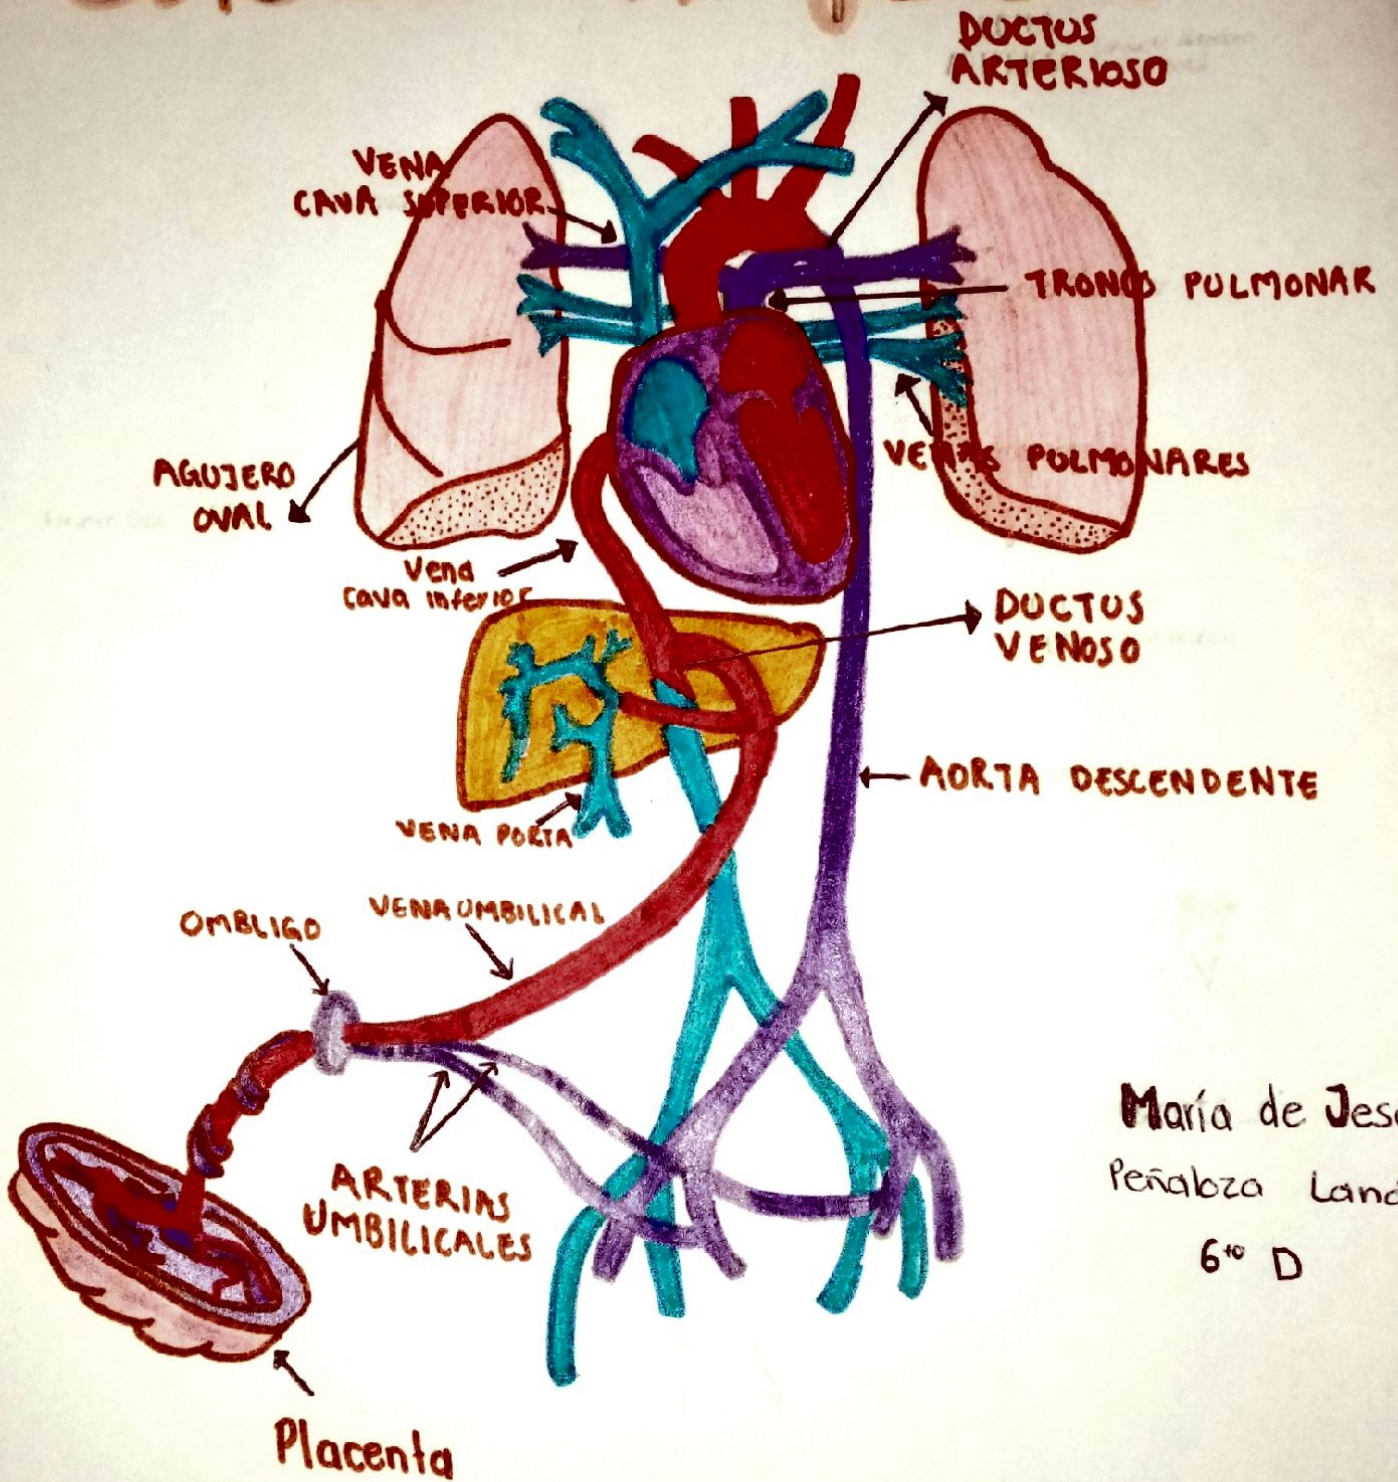 DUCTUS
ARTERIOSO
VENA
CAVA SUPERIOR
TRONCO PULMONAR
VENAS PULMONARES
AGUJERO
OVAL
Vena
cava inferior
DUCTUS
VENOSO
AORTA DESCENDENTE
VENA PORTA
VENA UMBILICAL
OMBLIGO
ARTERIAS
UMBILICALES
María de
Peñaloza
6to D
Placenta